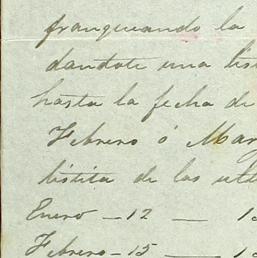 franqueando la
dandote una lis
hasta la fecha de
Febrero ó Mar
listita de las ult
Enero - 12 — 1
Febrero - 15 — 1